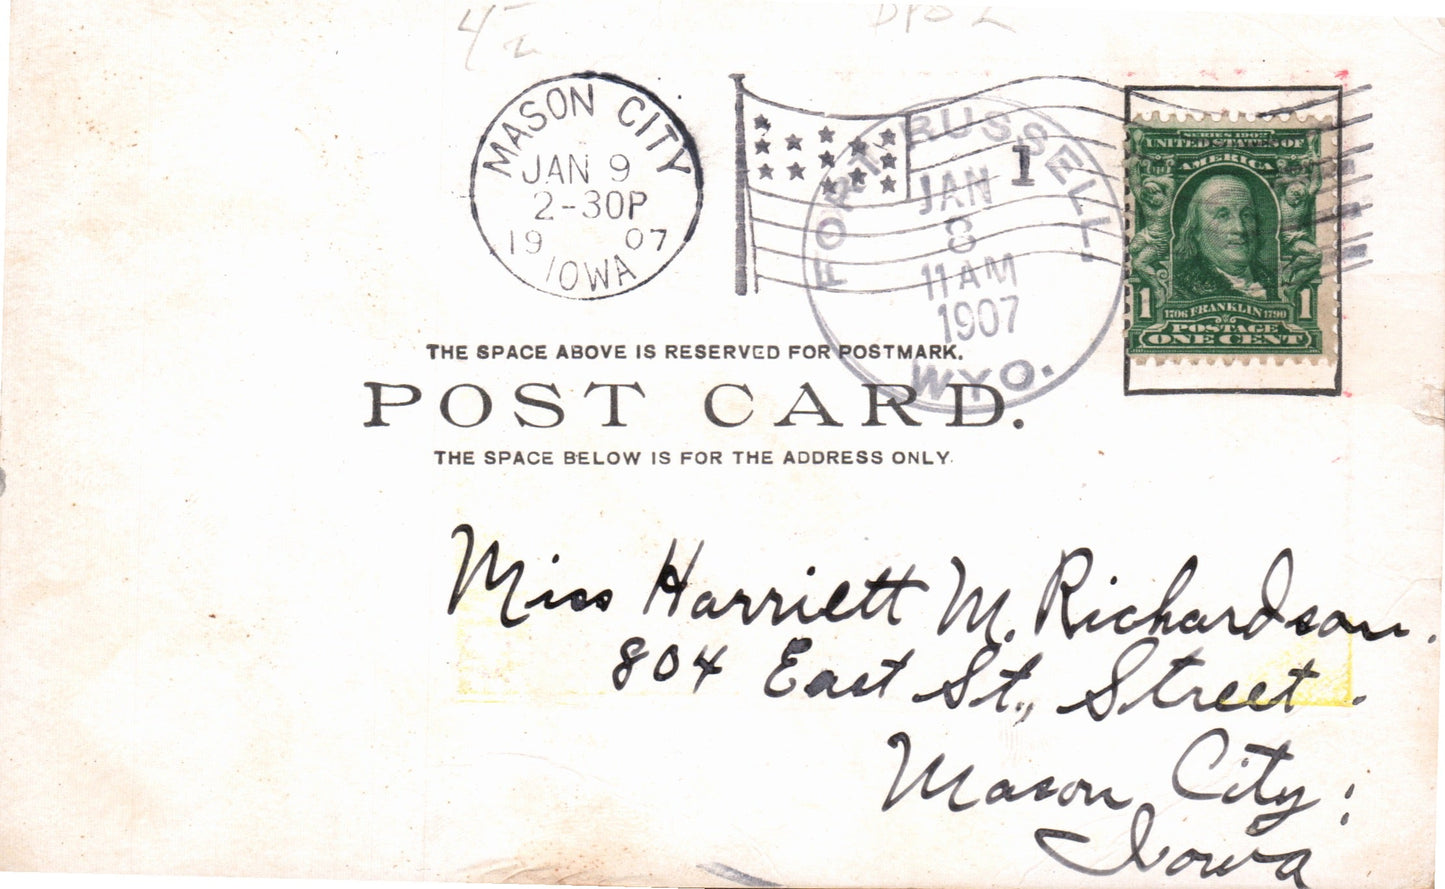 4-
2
DPO 2
MASON CITY
JAN 9
2-30P
19 07
IOWA
FORT RUSSELL.
1
JAN
8
11 AM
1907
WYO.
SERIES 1902
UNITED STATES OF
AMERICA
1 1
1706 FRANKLIN 1790
POSTAGE
ONE CENT
THE SPACE ABOVE IS RESERVED FOR POSTMARK.
POST CARD.
THE SPACE BELOW IS FOR THE ADDRESS ONLY.
Miss Harriett M. Richardson.
804 East St., Street.
Mason City;
Iowa